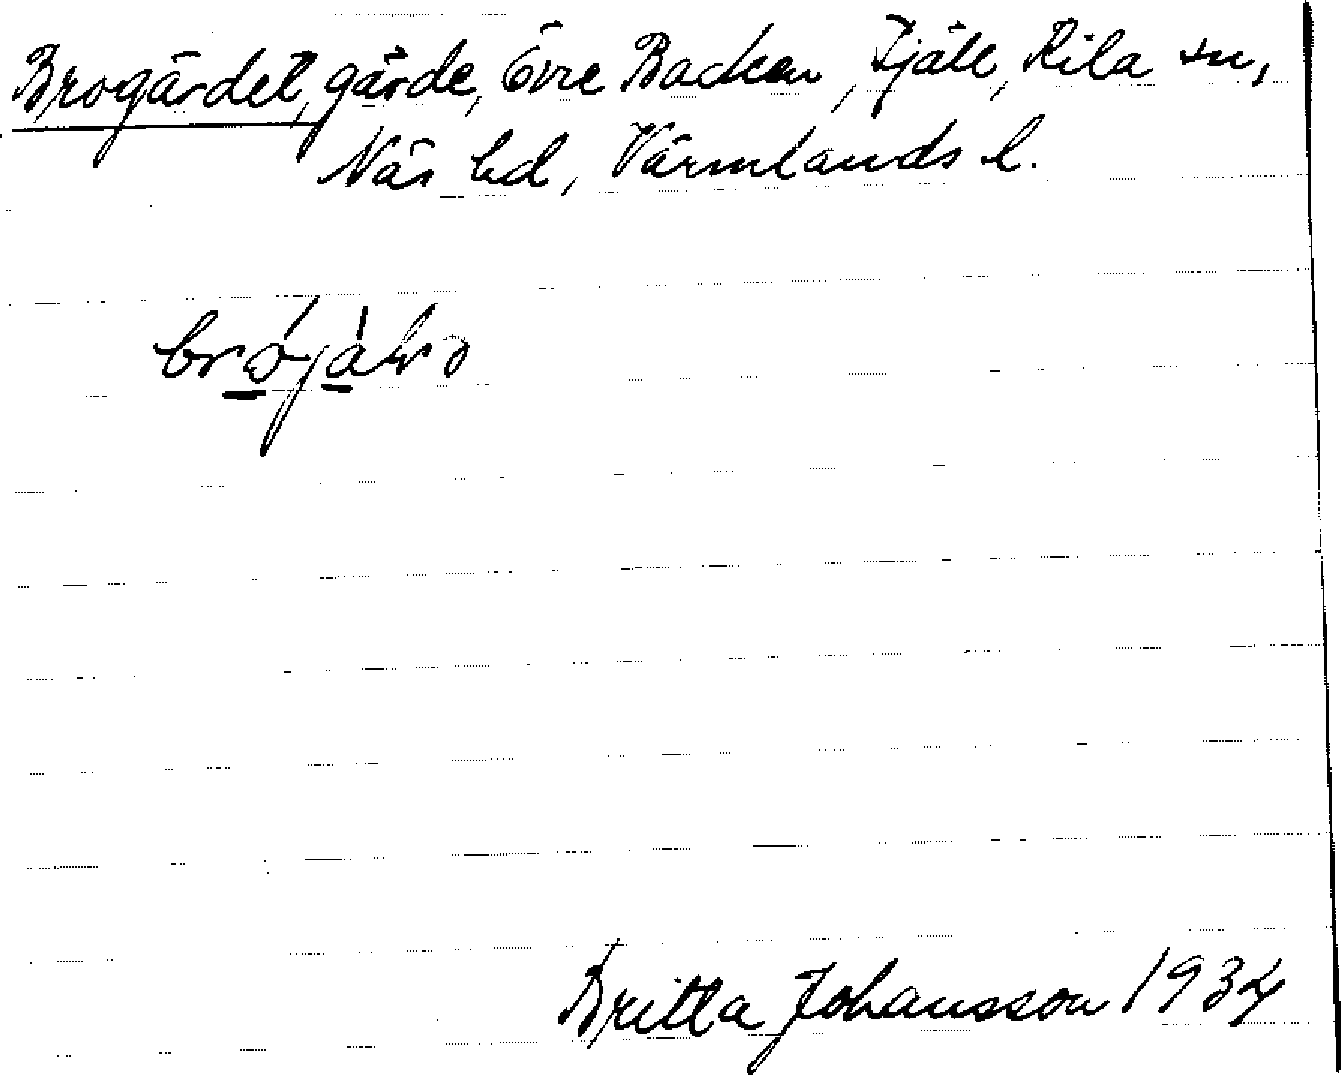 Brogärdet, gärde, Övre Backen, Tjäll, Kila sn,
Näs hd, Värmlands l.
Britta Johansson 1934